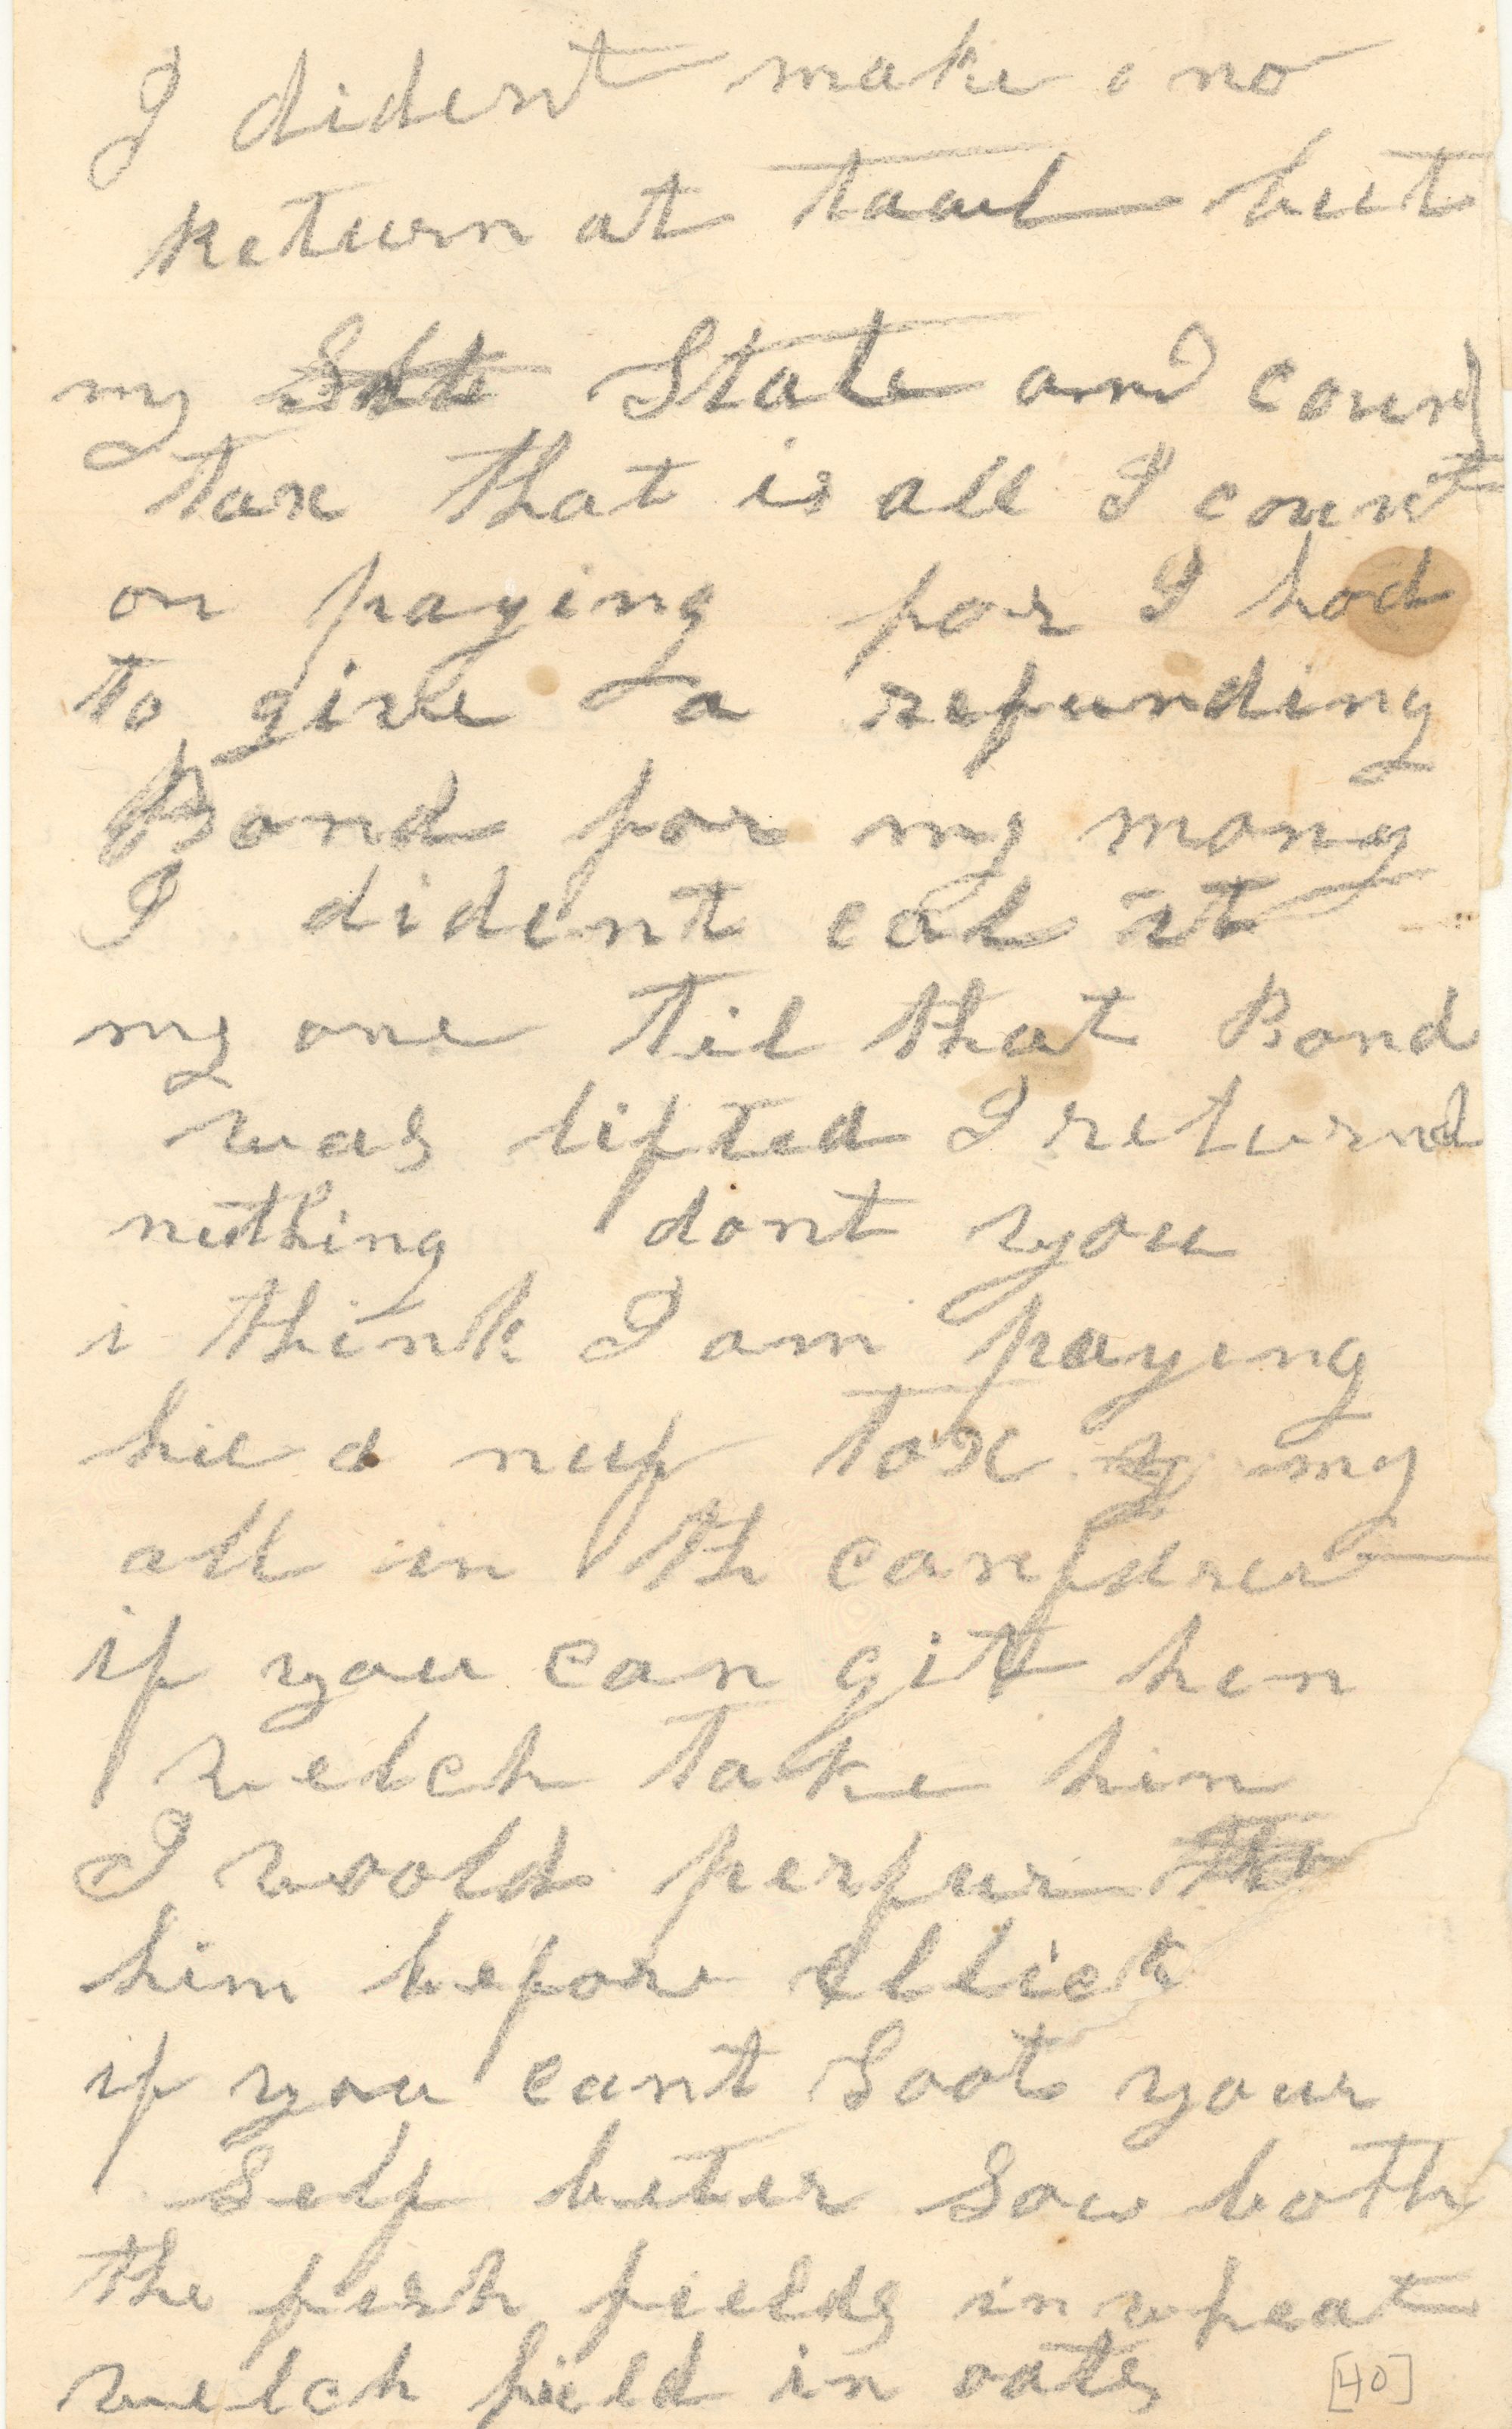 I dident make no
Return at taul but
my State and coun
tax that is all I count
on paying for I had
to give a refunding
Bond for my mony
I dident cal it
my one til that Bond
was lifted I returnd
nuthing dont you
i think I am paying
hie a nuf tax my
all in th confdret
if you can git hen
welch take him
I woold perfur
him before ellick
if you cant Soot your
Self beter Sow both
the fish fields in wheat
welch field in oats
[40]